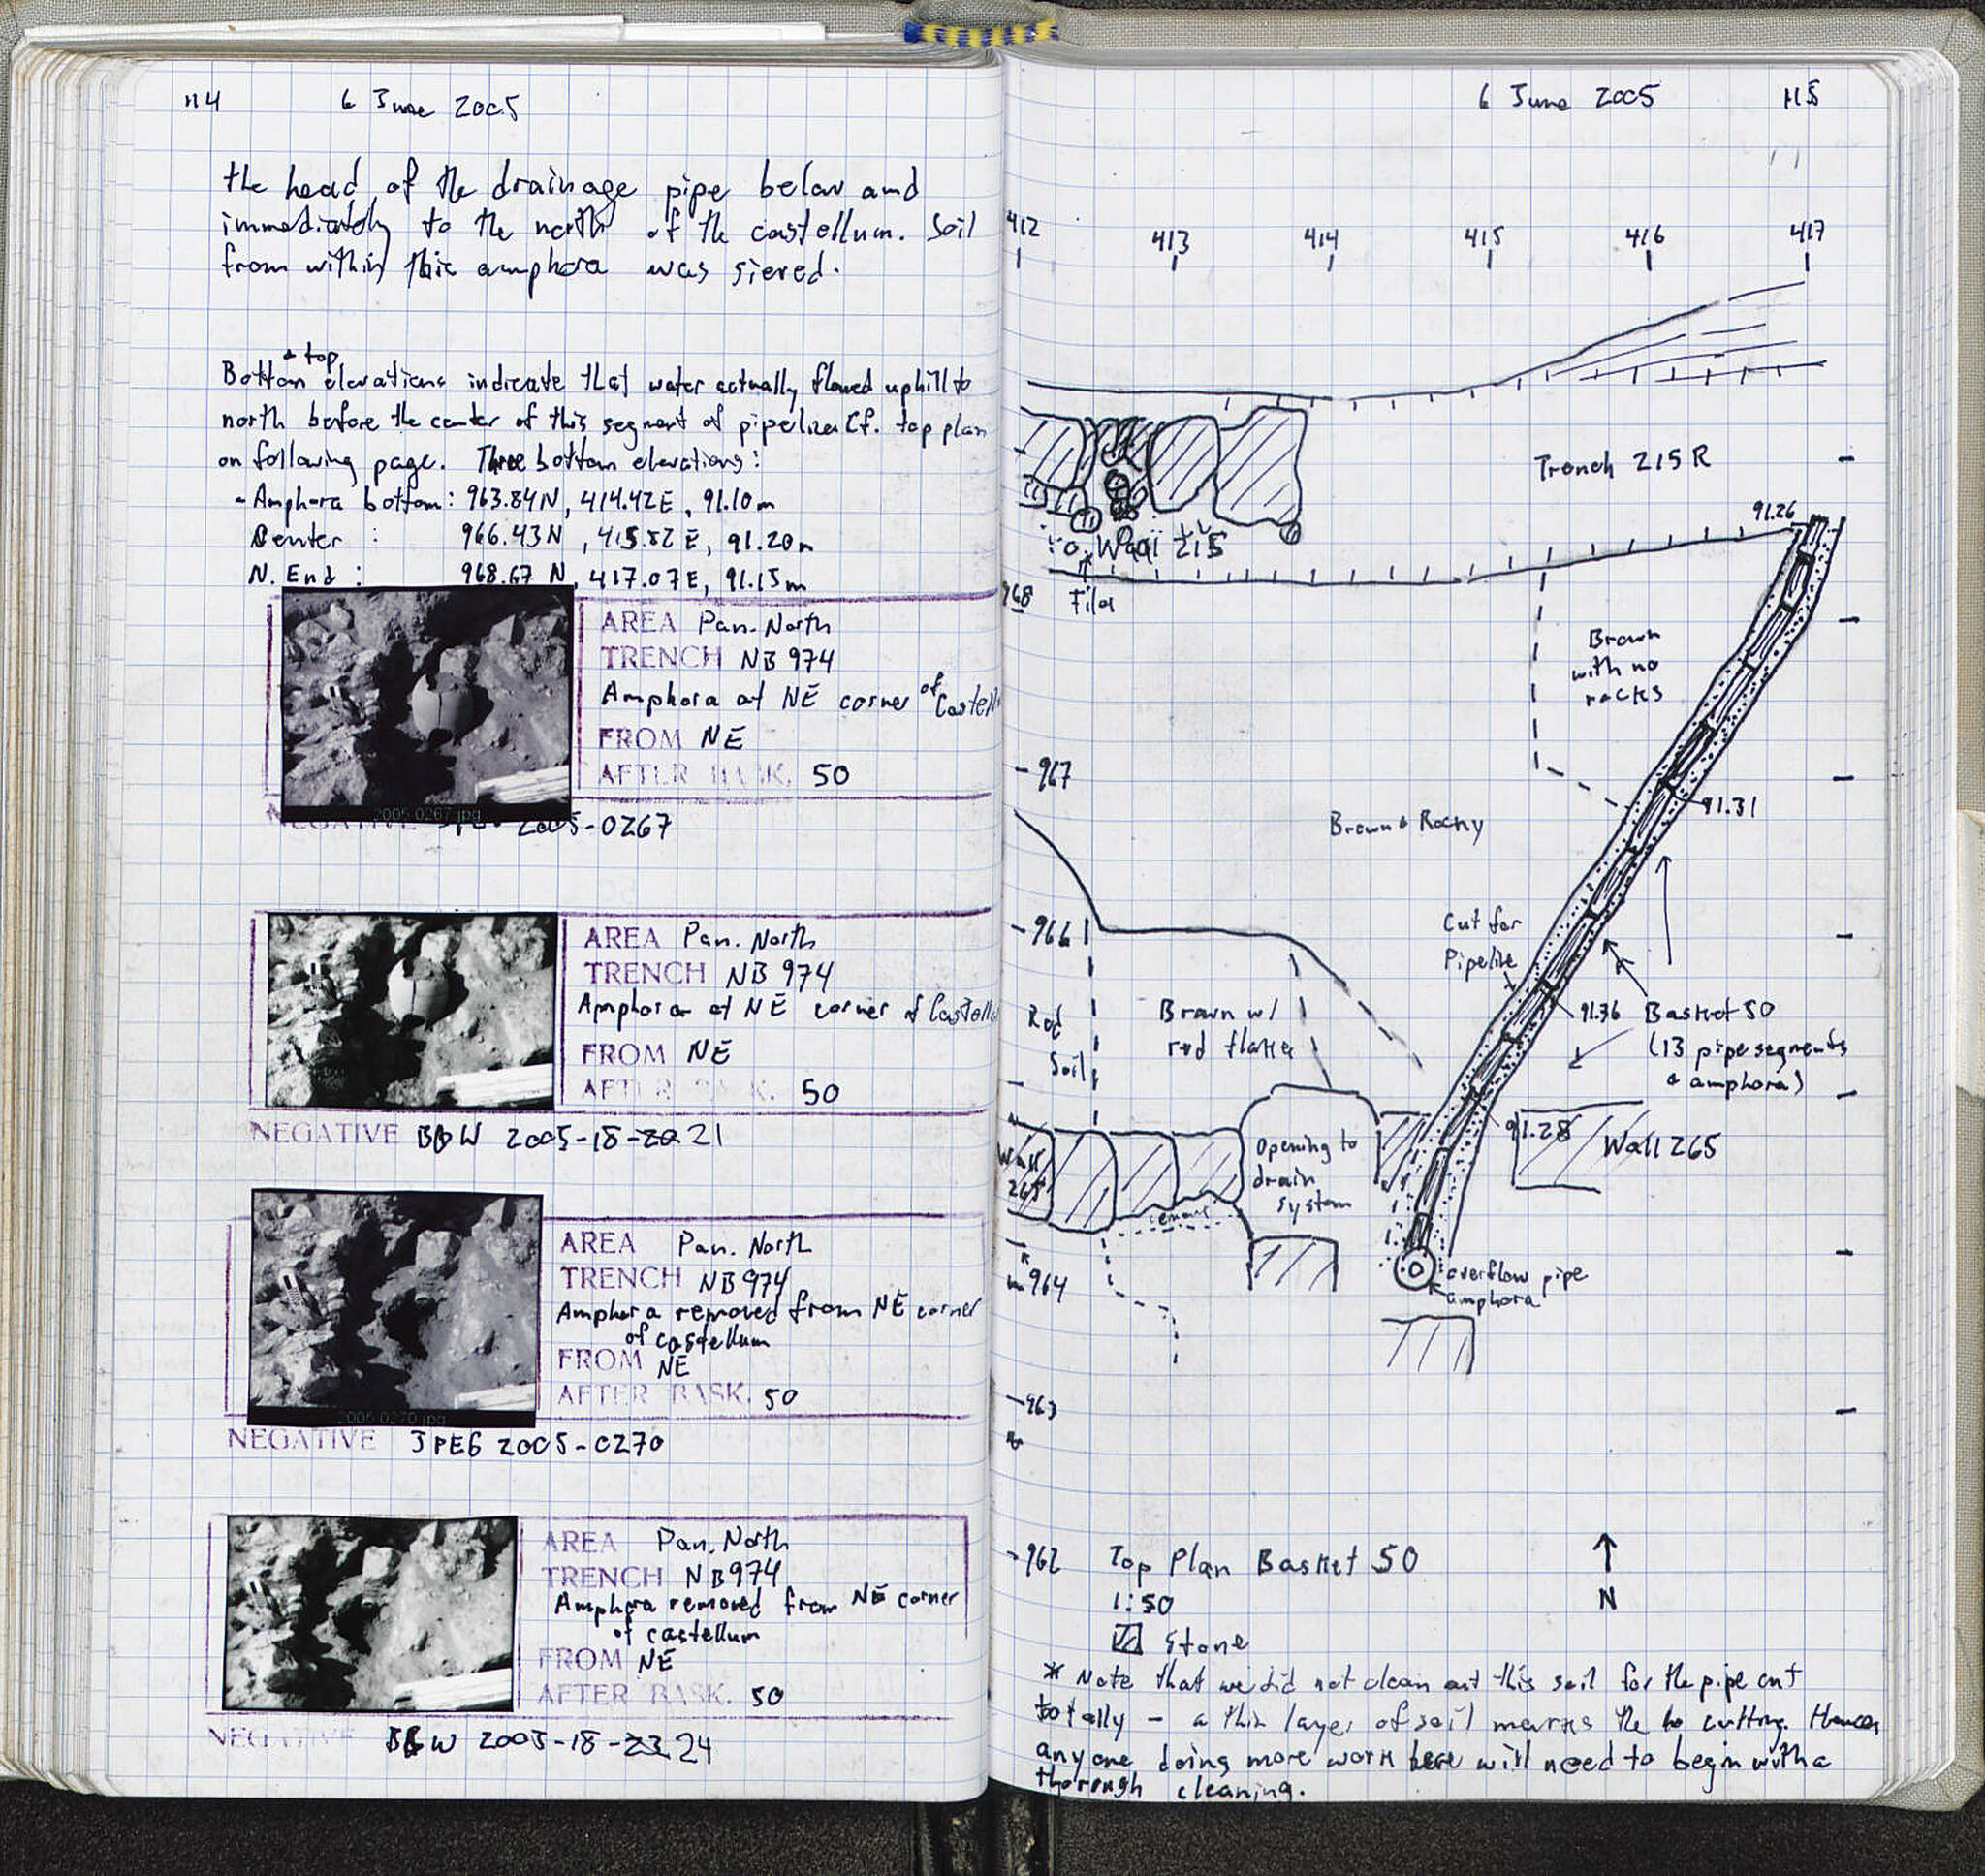 114 6 June 2005
the head of the drainage pipe below and
immediately to the north of the castellum. Soil
from within this amphora was sieved.
& top
Bottom elevations indicate that water actually flowed uphill to
north before the center of this segment of pipeline. Cf. top plan
on following page. Three bottom elevations:
- Amphora bottom: 963.84N, 414.42E, 91.10m
Center : 966.43N, 415.82E, 91.20m
N. End : 968.67 N, 417.07E, 91.15m
AREA Pan. North
TRENCH NB 974
Amphora at NE corner of Castell
FROM NE
AFTER BASK. 50
2005-0267.jpg
NEGATIVE JPEG 2005-0267
AREA Pan. North
TRENCH NB 974
Amphora at NE corner of Castell
FROM NE
AFTER BASK. 50
NEGATIVE B&W 2005-18-20 21
AREA Pan. North
TRENCH NB 974
Amphora removed from NE corner
of castellum
FROM NE
AFTER BASK. 50
2005-0270.jpg
NEGATIVE JPEG 2005-0270
AREA Pan. North
TRENCH NB974
Amphora removed from NE corner
of castellum
FROM NE
AFTER BASK. 50
NEGATIVE B&W 2005-18-23 24
6 June 2005 115
412 413 414 415 416 417
Trench 215 R
91.26
Wall 215
968 Fill
Brown
with no
rocks
967
91.31
Brown & Rocky
966
Cut for
Pipeline
91.36
Basket 50
(13 pipe segments
& amphora)
Red
Soil
Brown w/
red flakes
91.28
Wall 265
Wall
265
Opening to
drain
system
cement
964
overflow pipe
amphora
963
962 Top Plan Basket 50
1:50
N
Stone
* Note that we did not clean out this soil for the pipe cut
totally - a thin layer of soil marks the cutting. Hence
anyone doing more work here will need to begin with a
thorough cleaning.